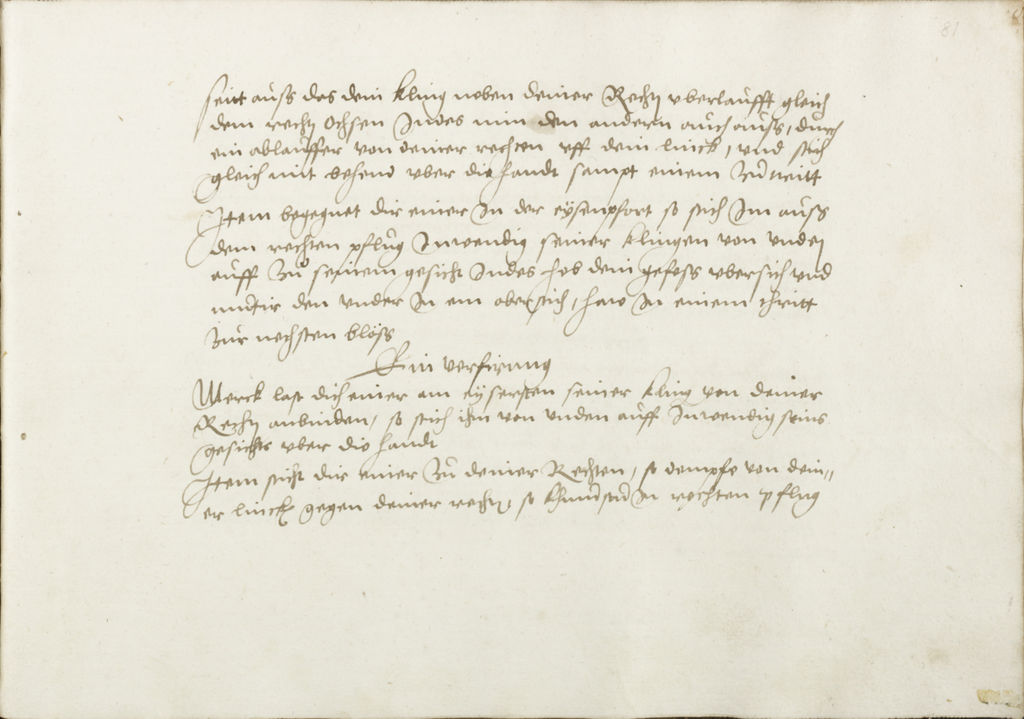 81
seitt auss das dein kling neben deiner Rechtn vberlaufft gleich
dem rechtn Ochsen Indes nim den andern auch auss, durch
ein ablauffer von deiner rechten vff dein linck, vnd stich
gleich mit behend vber die handt sampt einem Zůtritt
Item begegnet dir einer In der eysenpfort so stich Im auss
dem rechten pflůg Inwendig seiner klingen von vnden
auff Zů seinem gesicht Indes heb dein gefess vbersich vnd
den vnder In ein ober stich, haw In einem thritt
Zur nechsten blöss
Ein verfirung
Merck last dich einer am eysersten seiner kling von deiner
Rechtn anbinden, so stich ihm von vnden auff Inwendig seins
gesichts vber die handt
Item sticht dir einer Zů deiner Rechten, so dempfe von dein,,
er linckn gegen deiner rechtn, so In rechten pflug